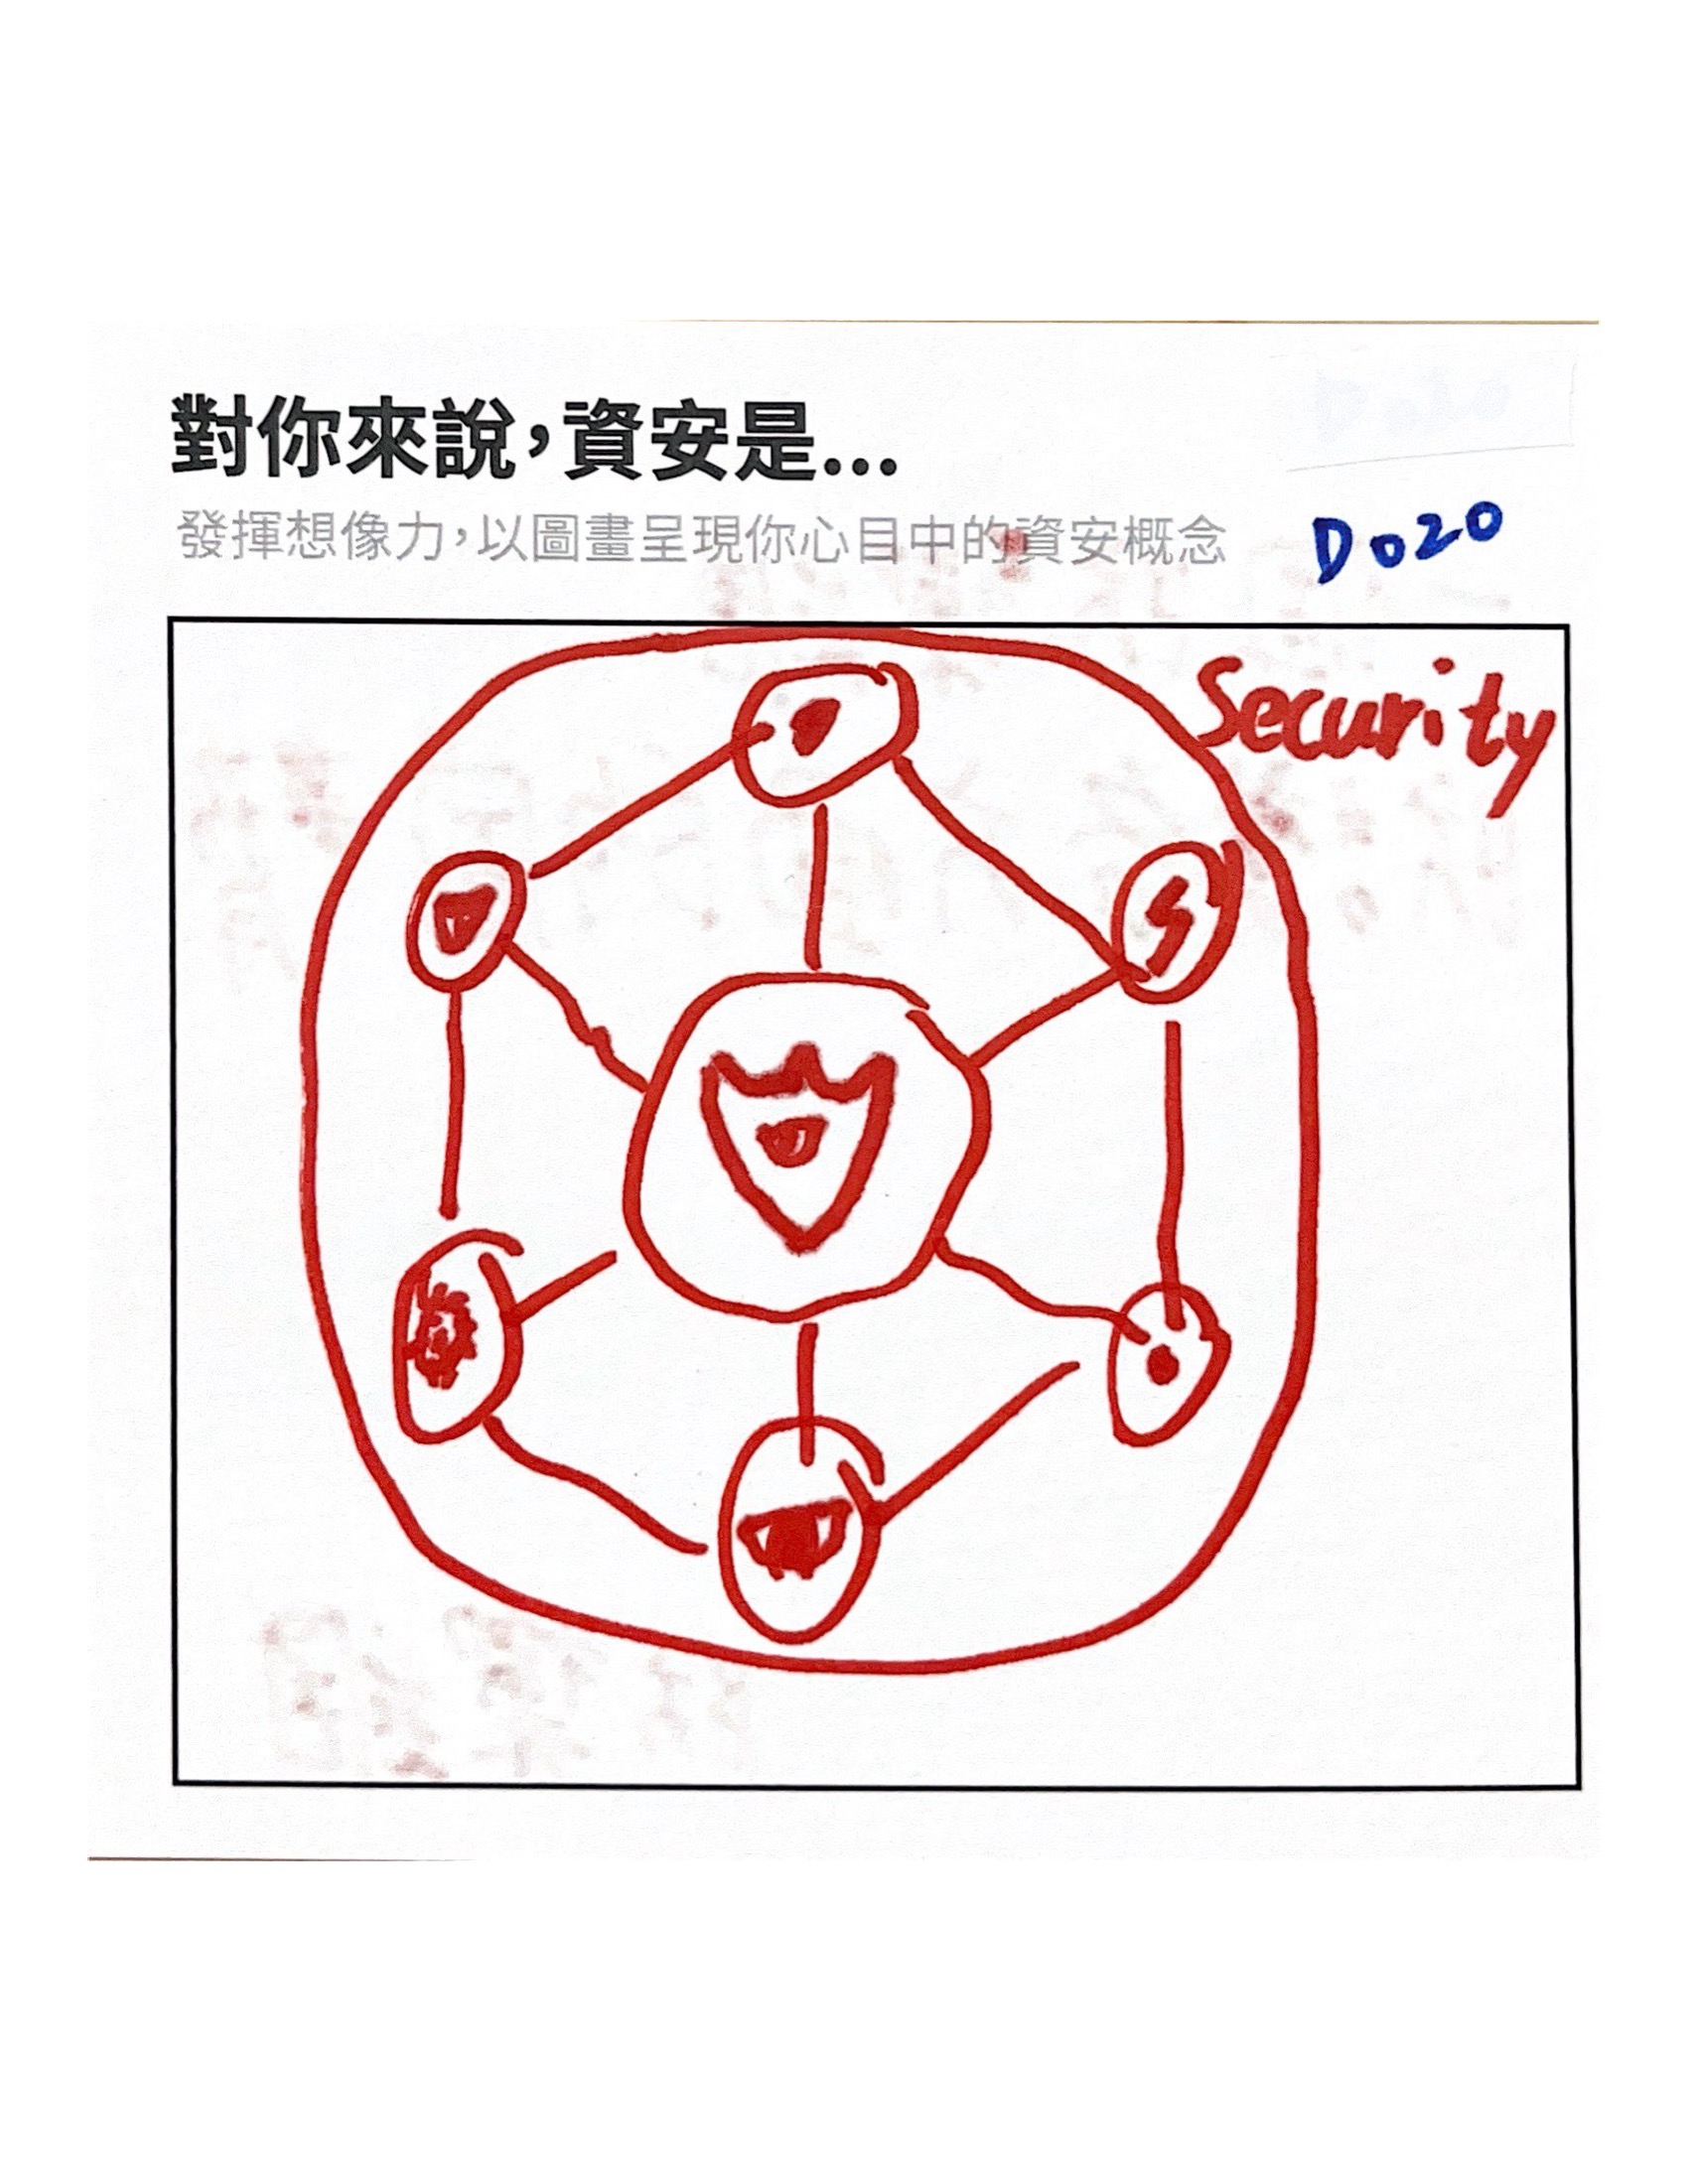 對你來說,資安是...
發揮想像力,以圖畫呈現你心目中的資安概念
D020
Security